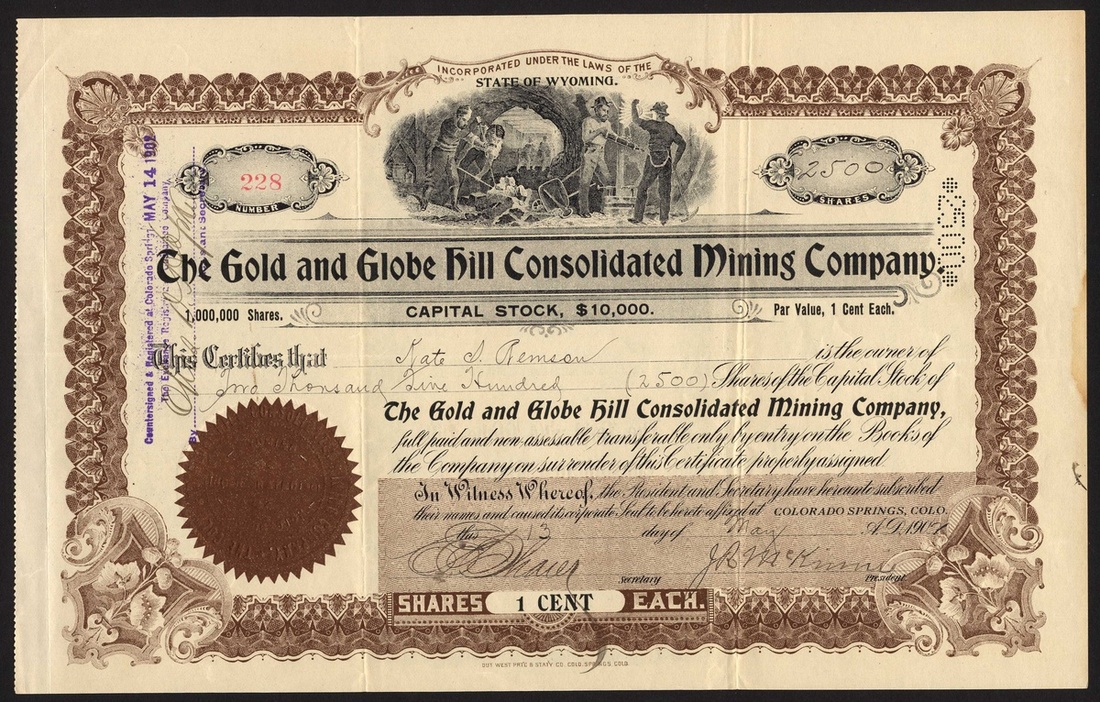 INCORPORATED UNDER THE LAWS OF THE
STATE OF WYOMING.
228
NUMBER
2500
SHARES
*2500*
The Gold and Globe Hill Consolidated Mining Company.
1,000,000 Shares.
CAPITAL STOCK, $10,000.
Par Value, 1 Cent Each.
This Certifies that Kate S. Remson is the owner of
Two Thousand Five Hundred (2500) Shares of the Capital Stock of
The Gold and Globe Hill Consolidated Mining Company,
full paid and non-assessable transferable only by entry on the Books of
the Company on surrender of this Certificate properly assigned
In Witness Whereof, the President and Secretary have hereunto subscribed
their names and caused its corporate Seal to be hereto affixed at COLORADO SPRINGS, COLO.
this 13 day of May A.D. 190
secretary
J R McKinnie
president
SHARES 1 CENT EACH.
OUT WEST PRT'G & STAT'Y CO. COLO. SPRINGS, COLO.
Countersigned & Registered at Colorado Springs MAY 14 190
The Exchange Registration Company
By